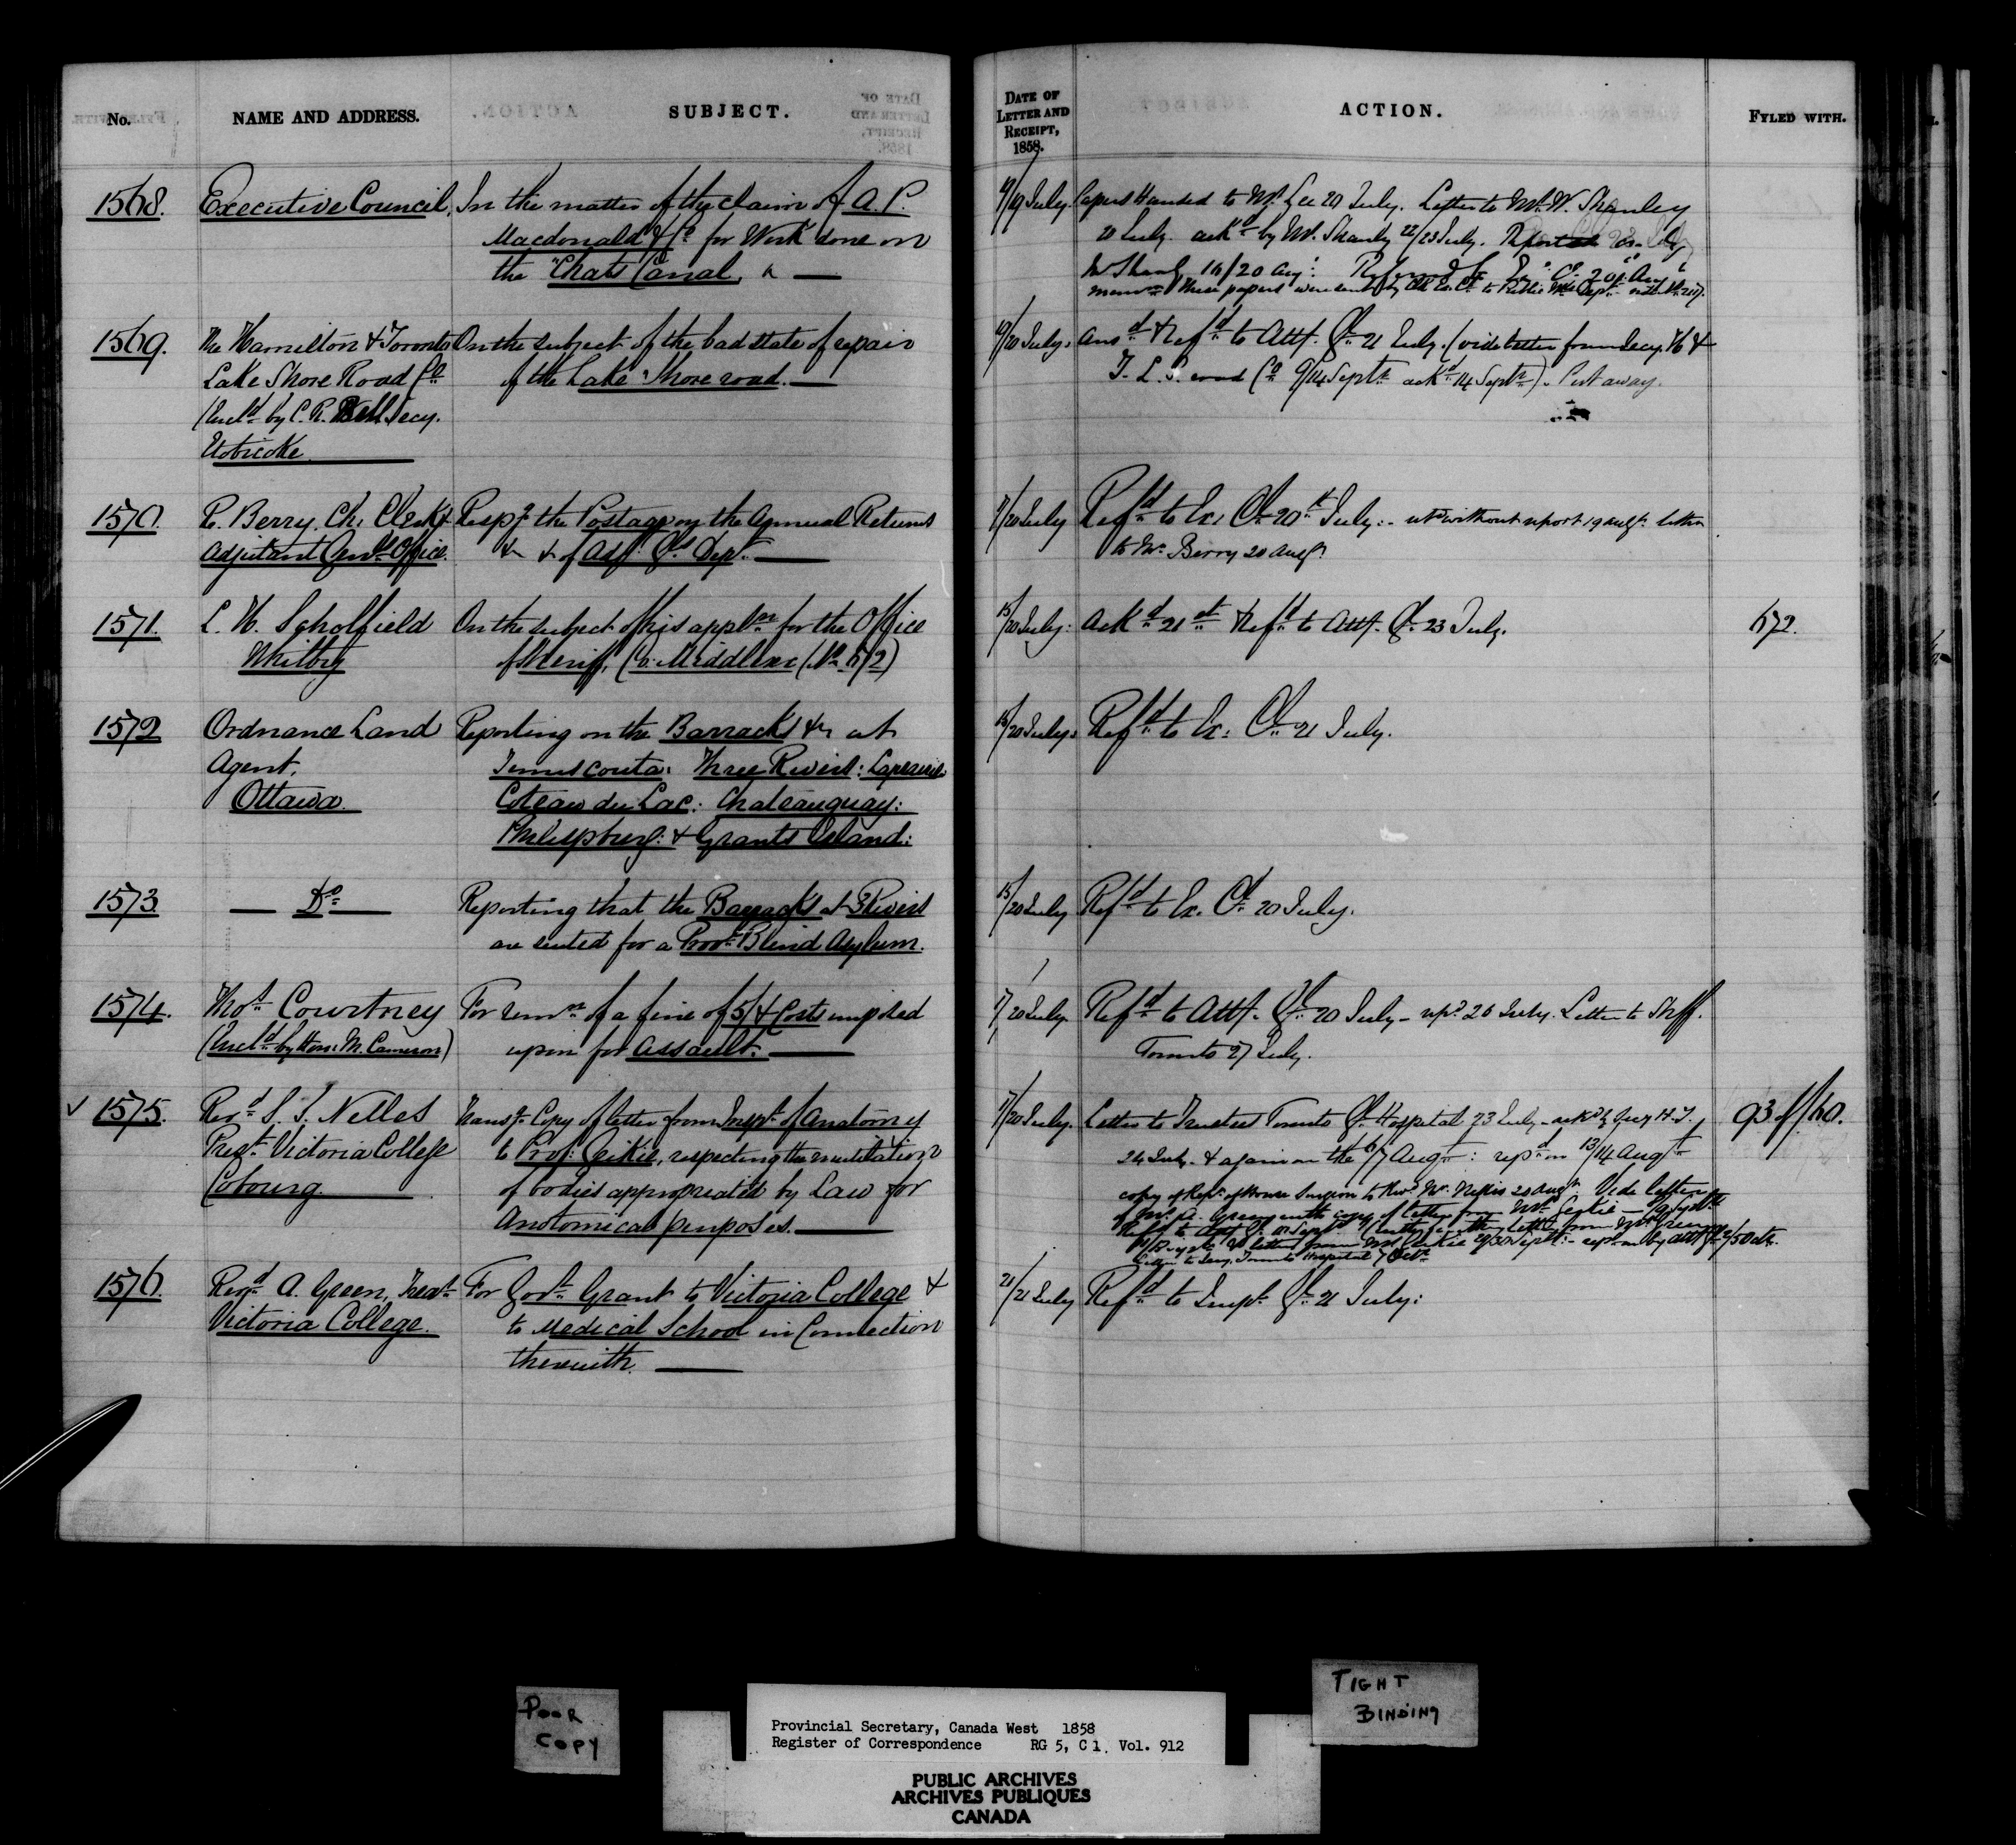 No.
NAME AND ADDRESS.
SUBJECT.
DATE OF
LETTER AND
RECEIPT,
1858.
ACTION.
FYLED WITH.
1568.
Executive Council,
In the matter of the claim of A. P.
Macdonald & Co for Work done on
the "Chats Canal,
19/19 July.
Papers Handed to Mr. Lee 20 July. Letter to Mr. W. Shanley
20 July. ackd by W. Shanly 22/23 July.
Mr Shanly 16/20 Augt. Referred to Ex. Cl. 20 Augt
these papers were sent by Clk Ex. Cl. to Public Wks Dept.
1569.
The Hamilton & Toronto
Lake Shore Road Co
(Encld by C. R. Bell Secy.
Etobicoke
On the subject of the bad state of repair
of the Lake Shore road.
19/20 July.
Ansd & Refd to Atty. Gl. 21 July. (vide letter from Secy. H &
T. L. S. road Co 9/14 Septr ackd 14 Septr). Put away.
1570.
P. Berry, Ch. Clerk
Adjutant Genl's Office.
Respg the Postage on the Annual Returns
&c &c of Adjt. Gl's Dept.
7/20 July
Refd to Ex. Cl. 20th July. - retd without report 19 Augt. letter
to Mr. Berry 20 Augt.
1571.
L. H. Scholfield
Whitby
On the subject of his appln for the Office
of Sheriff, Co. Middlesex (No. 672)
15/20 July.
Ackd 21st & Refd to Atty. Gl. 23 July.
672.
1572
Ordnance Land
Agent.
Ottawa.
Reporting on the Barracks &c at
Temiscouta: Three Rivers: Laprairie
Coteau du Lac: Chateauguay:
Philipsburg: & Grants Island:
15/20 July.
Refd to Ex: Cl. 21 July.
1573.
Do
Reporting that the Barracks at 3 Rivers
are suited for a Provl Blind Asylum.
15/20 July
Refd to Ex. Cl. 20 July.
1574.
Thos Courtney
(Encld by Hon: M. Cameron)
For remn of a fine of 5/ & Costs imposed
upon for Assault.
17/20 July.
Refd to Atty. Gl. 20 July - repd 26 July. Letter to Shff.
Toronto 27 July.
1575.
Revd S. S. Nelles
Prest Victoria College
Cobourg.
Transg Copy of letter from Inspr of Anatomy
to Prof: Geikie, respecting the mutilation
of bodies appropriated by Law for
Anatomical purposes.
17/20 July.
Letter to Trustees Toronto Gl. Hospital 23 July - ackd by Secy H. T.
24 July. & again on the 6/7 Augt: repd on 13/14 Augt
copy of Rept. of House Surgeon to Revd Mr. Nelles 20 Augt. Vide letter
of Mr. A. Green with copy of letter from Mr. Geikie
letter from Mr. Geikie 29/30 Septr: - repd on by Atty Gl. 2/5 Oct.
Letter to Secy. Toronto Hospital 7 Octr
93 of/60.
1576.
Revd A. Green, Treasr
Victoria College.
For Govt Grant to Victoria College &
to Medical School in Connection
therewith.
21/21 July
Refd to Inspr Gl. 21 July:
POOR
COPY
TIGHT
BINDING
Provincial Secretary, Canada West 1858
Register of Correspondence RG 5, C 1, Vol. 912
PUBLIC ARCHIVES
ARCHIVES PUBLIQUES
CANADA